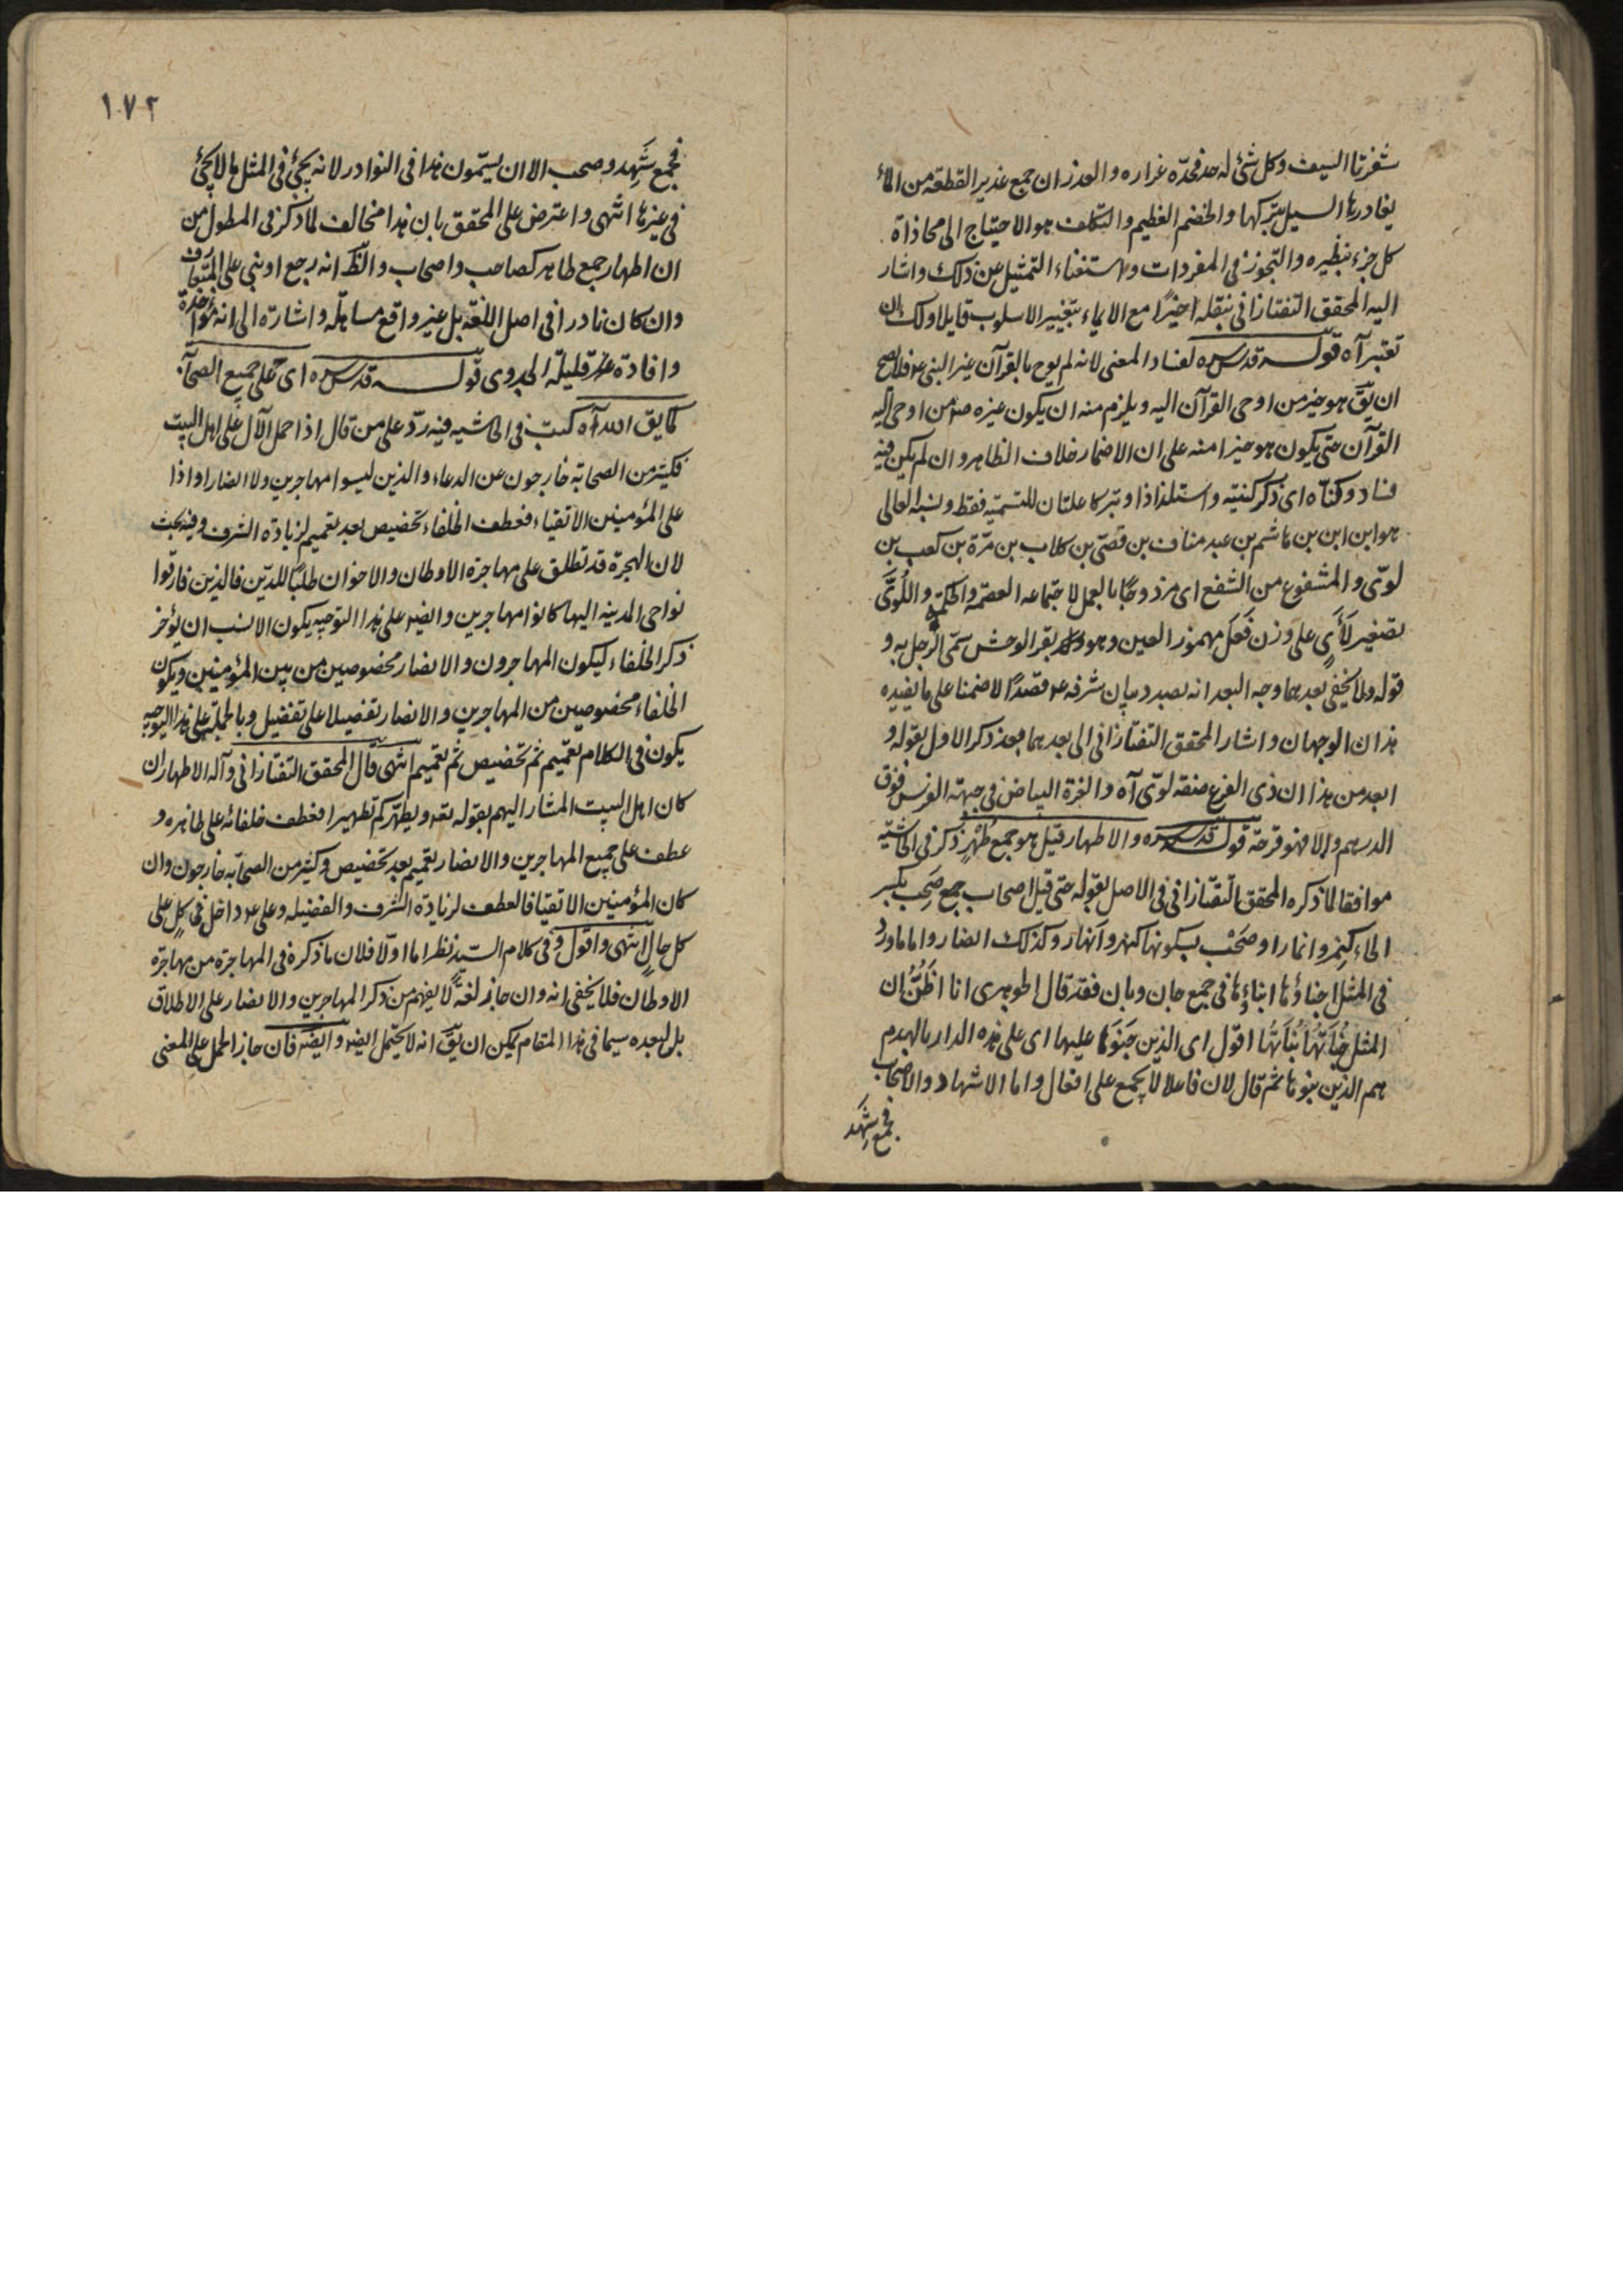 شفرتا السيف وكل شئ له حد فحدّه غراره والغدران جمع غدير القطعة من الماء
يغادرها السيل يتركها والخضم العظيم والتكلف هو الاحتياج الى محاذاة
كل جزء بنظيره والتجوز فى المفردات واستغناء التمثيل عن ذلك واشار
اليه المحقق التفتازانى بنقله اخيرًا مع الايماء بتغيير الاسلوب قايلا ولك ان
تعتبر آه قوله قدس سره لفساد المعنى لانه لم يوح بالقرآن غير النبى عم فلا يصح
ان يقّ هو خير من اوحى القرآن اليه ويلزم منه ان يكون غيره ممن اوحى اليه
القرآن حتى يكون هو خيرا منه على ان الاضمار خلاف الظاهر وان لم يكن فيه
فساد وكنّاه اى ذكر كنيته واستلذاذا وتبركا علتان للتسمية فقط ونسبه العالى
هو ابن ابن بن هاشم بن عبد مناف بن قصىّ بن كلاب بن مرّة بن كعب بن
لوىّ والمشفوع من الشفع اى مزدوجًا بالعمل لاجتماعه العصمة والحكمة واللُوَّىَّ
تصغير لَأىٍ على وزن فَعَل مهموز العين وهو بقر الوحش سمّى الرجل به و
قوله ولا يخفى بعدهما وجه البعد انه بصدد بيان شرفه عم قصدًا لا ضمنا على ما يفيده
هذان الوجهان واشار المحقق التفتازانى الى بعدهما بعد ذكر الاول بقوله و
ابعد من هذا ان ذى الفرع صفة لوىّ آه والغرة البياض فى جبهة الفرس فوق
الدرهم والا فهو قرحة قوله قدس سره والاطهار قيل هو جمع طُهْرٍ ذكر فى الحاشية
موافقا لما ذكره المحقق التفتازانى فى الاصل بقوله حتى قيل اصحاب جمع صَحِب بكسر
الحاء كنِمر وانمارا وصَحْب بسكونها كنهر وانهار وكذلك انصار واما ما ورد
فى المثل اجناؤها ابناؤها فى جمع جان وبان فقد قال الجوهرى انا اظُنُّ ان
المثل جُنَاتُهَا بُنَاتُهَا اقول اى الذين جَنَوا عليها اى على هذه الدار بالهدم
هم الذين بنوها ثم قال لان فاعلا لا يجمع على افعال واما الاشهاد والاصحاب
فجمع شَهِد
١٧٢
فجمع شَهِد وصحب الا ان يسمّون هذا فى النوادر لانه يجئ فى المثل ما لا يجئ
فى غيرها انتهى واعترض على المحقق بان هذا مخالف لما ذكر فى المطول من
ان اطهار جمع طاهر كصاحب واصحاب والظّ انه رجع او بنى على المتعارف
وان كان نادرا فى اصل اللغة بل غير واقع مساهلة واشارة الى انه مؤاخذة
وافادة قليلة الجدوى قوله قدس سره اى على جميع الصحابة
كما يقّ الله آه كتب فى الحاشيه فيه ردّ على من قال اذا حمل الآل على اهل البيت
فكثير من الصحابة خارجون عن الدعاء والذين ليسوا مهاجرين ولا انصارا واذا
على المؤمنين الاتقياء فعطف الخلفاء تخصيص بعد تعميم لزيادة الشرف وفيه بحث
لان الهجرة قد تطلق على مهاجرة الاوطان والاخوان طلبًا للدّين فالذين فارقوا
نواحى المدينه اليها كانوا مهاجرين وايضا على هذا التوجيه يكون الانسب ان يؤخر
ذكر الخلفاء ليكون المهاجرون والانصار مخصوصين من بين المؤمنين ويكون
الخلفاء مخصوصين من المهاجرين والانصار تفضيلا على تفضيل وبالجملة على هذا التوجيه
يكون فى الكلام تعميم ثم تخصيص ثم تعميم انتهى قال المحقق التفتازانى وآله الاطهار ان
كان اهل البيت المشار اليهم بقوله تعه ويطهّركم تطهيرا فعطف خلفائه على ظاهره و
عطف على جميع المهاجرين والانصار تعميم بعد تخصيص وكثير من الصحابّه خارجون وان
كان المؤمنين الاتقيا فالعطف لزيادة الشرف والفضيله وعلى عم داخل فى كلٍ على
كل حالٍ انتهى واقول وفى كلام السيد نظر اما اولا فلان ما ذكره فى المهاجرة من مهاجرة
الاوطان فلا يخفى انه وان جاز لغةً لا يفهم من ذكر المهاجرين والانصار على الاطلاق
بل لبعده سيما فى هذا المقام يمكن ان يقّ انه لا يحتمل ايضا وايضًا فان جاز الحمل على المعنى